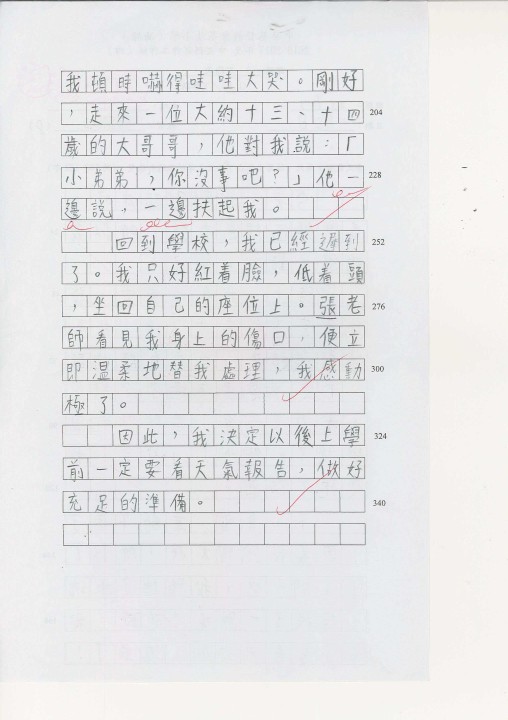 我頓時嚇得哇哇大哭。剛好
，走來一位大約十三、十四 204
歲的大哥哥，他對我說：「
小弟弟，你沒事吧？」他一 228
邊說，一邊扶起我。
回到學校，我已經遲到 252
了。我只好紅着臉，低着頭
，坐回自己的座位上。張老 276
師看見我身上的傷口，便立
即溫柔地替我處理，我感動 300
極了。
因此，我決定以後上學 324
前一定要看天氣報告，做好
充足的準備。 340